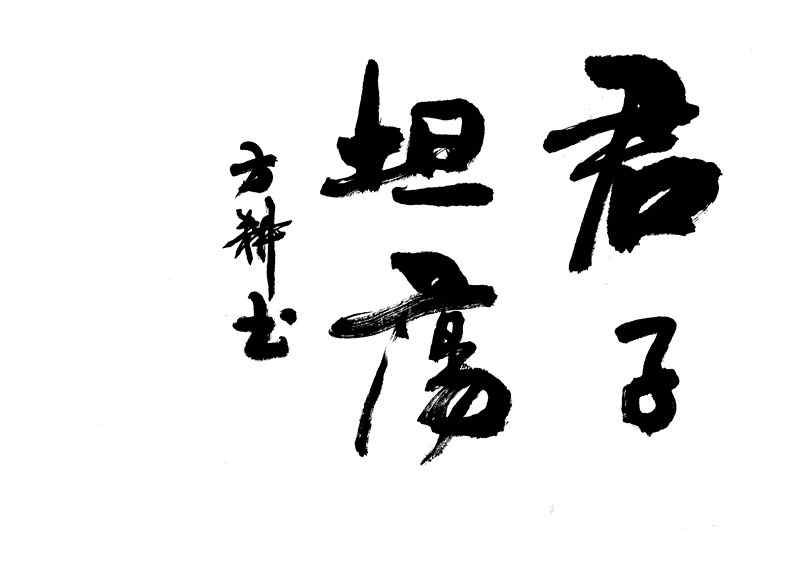 君子
坦蕩
方耕书